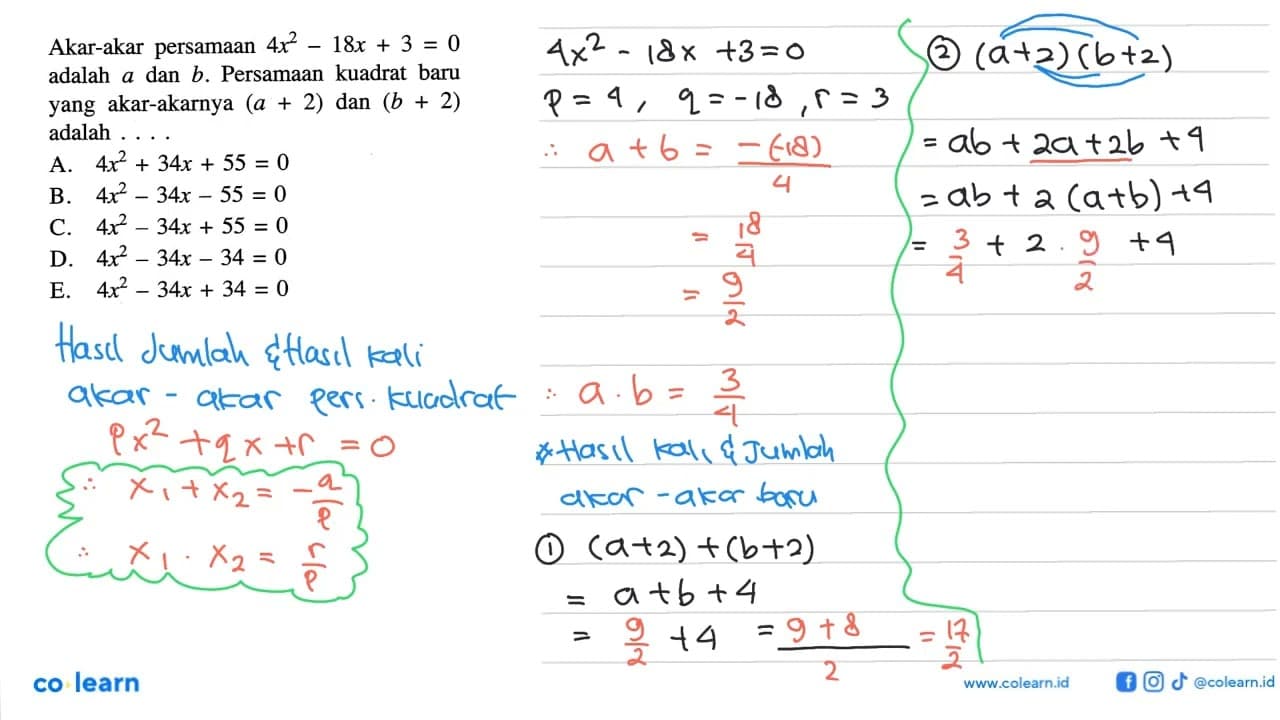 Akar-akar persamaan 4x² - 18x + 3 = 0
adalah a dan b. Persamaan kuadrat baru
yang akar-akarnya (a + 2) dan (b + 2)
adalah . . . .
A. 4x² + 34x + 55 = 0
B. 4x² - 34x - 55 = 0
C. 4x² - 34x + 55 = 0
D. 4x² - 34x - 34 = 0
E. 4x² - 34x + 34 = 0
Hasil Jumlah & Hasil kali
akar - akar pers. kuadrat
px² + qx + r = 0
∴ x₁ + x₂ = -q/p
∴ x₁ . x₂ = r/p
4x² - 18x + 3 = 0
p = 4, q = -18, r = 3
∴ a + b = -(-18)/4
= 18/4
= 9/2
∴ a . b = 3/4
* Hasil kali & Jumlah
akar - akar baru
① (a+2) + (b+2)
= a + b + 4
= 9/2 + 4 = (9 + 8)/2 = 17/2
② (a+2)(b+2)
= ab + 2a + 2b + 4
= ab + 2 (a+b) + 4
= 3/4 + 2 . 9/2 + 4
co learn
www.colearn.id
@colearn.id